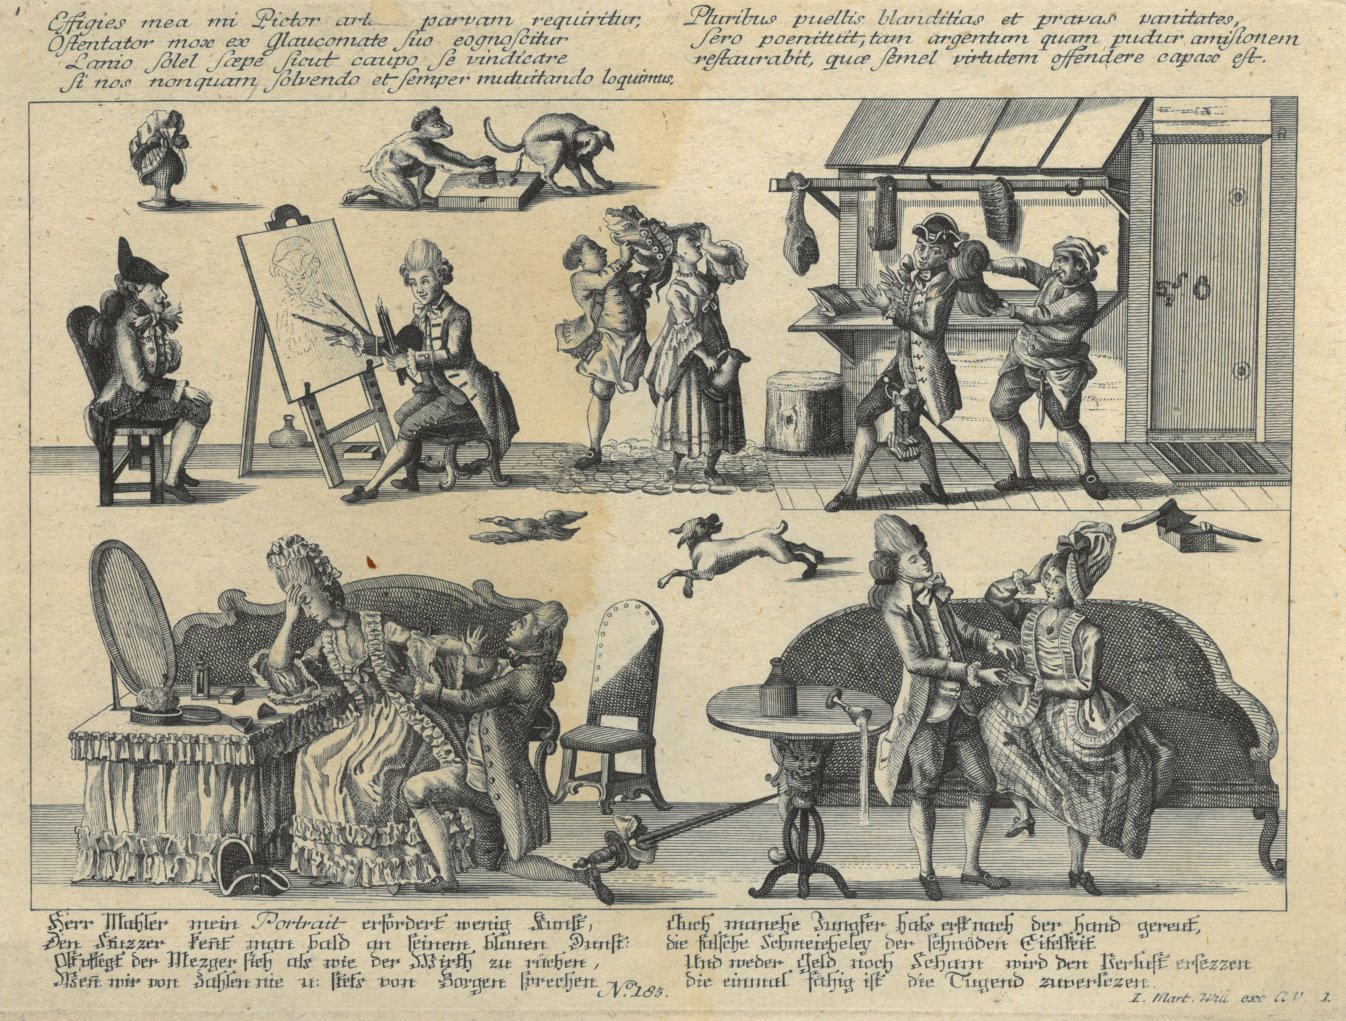 Effigies mea mi Pictor art parvam requiritur,
Ostentator mox ex Glaucomate suo eognoscitur
Lanio solel sæpe sicut caupo se vindicare
si nos nonquam solvendo et semper mutuitando loquimus.
Pluribus puellis blanditias et pravas vanitates,
sero poenituit, tam argentum quam pudur amisionem
restaurabit, quæ semel virtutem offendere capax est.
Herr Mahler mein Portrait erfordert wenig Kunst,
Den Stuzzer kent man bald an seinem blauen Dunst:
Oft pflegt der Mezger sich als wie der Wirth zu rächen,
Wen wir von Zahlen nie u: stets von Borgen sprechen
No. 185.
Auch manche Jungfer hats erst nach der hand gereut,
die falsche Schmeicheley der schnöden Eitelkeit
Und weder Geld noch Scham wird den Verlust ersezzen
die einmal fähig ist die Tugend zuverlezen.
I. Mart. Will exc A.V. 1.